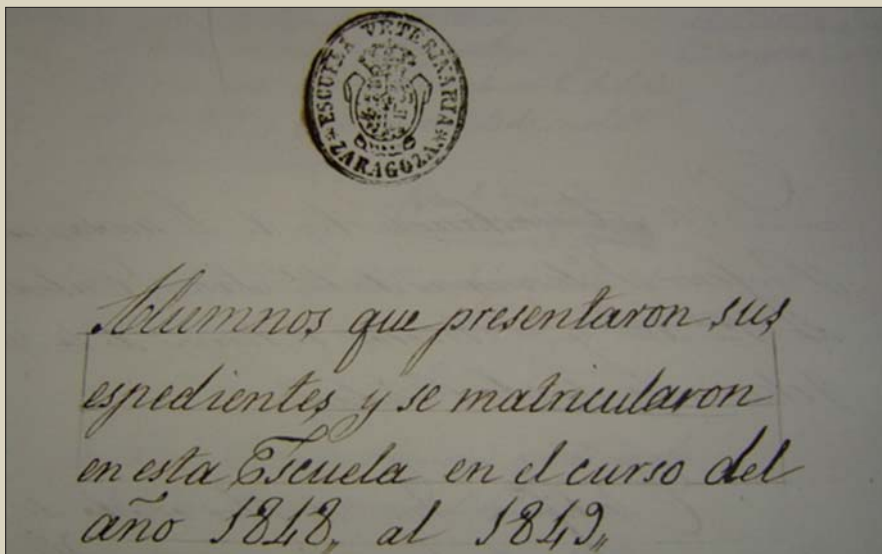 * ESCUELA VETERINARIA * ZARAGOZA
Alumnos que presentaron sus
espedientes y se matricularon
en esta Escuela en el curso del
año 1848,, al 1849,,